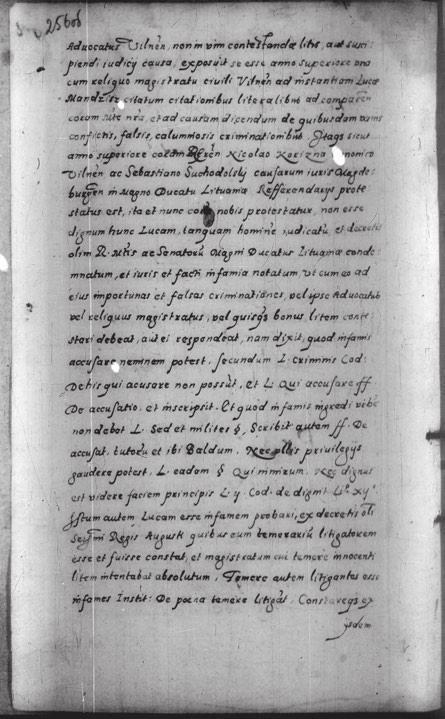 256v
Advocatus Vilneñ, non in vim contestandæ litis, aut susci-
piendi iudicij causa, exposuit se esse anno superiore una
cum reliquo magistratu civili Vilneñ ad instantiam Lucæ
Mandzisz citatum citationibus literalibus ad comparen
coram Mte nrã, et ad causam dicendum de quibusdam
confictis, falsis, calumniosis criminationibus. Itaqз sicut
anno superiore coram Nicolao Korizna
Vilneñ ac Sebastiano Suchodolskj causarum iuris Magde-
burgeñ in Magno Ducatu Lituaniæ Refferendarijs prote
status est, ita et nunc corã nobis protestatur, non esse
dignum hunc Lucam, tanquam hominẽ iudicatũ, et decretis
olim R. Mtis ac Senatorũ Magni Ducatus Lituaniæ conde-
mnatum, et iuris et facti infamia notatum ut cum eo ad
eius importunas et falsas criminationes, vel ipse Advocatus
vel reliquus magistratus, vel quisqз bonus litem conte-
stari debeat, aut ei respondeat, nam dixit, quod infamis
accusare neminem potest, secundum L. criminis Cod:
De his qui acusare non possũt, et L. Qui accusare ff
De accusatio. et inscripsit. Et quod infamis ingredi
non debet L. Sed et milites §. Scribit autem ff. De
accusat, tutorũ et ibi Baldum. Nec ullis privilegijs
gaudere potest. L. eadem § Qui nimirum. Nec dignus
est videre faciem principis L. y. Cod. de dignit Li° xij°
Istum autem Lucam esse infamem probari, ex decretis oli
Seymi Regis Augusti quibus eum temerariũ litigatorem
esse et fuisse constat, et magistratum cui temere innocenti
litem intentabat absolutum. Temere autem litigantes esse
infames Instit: De poena temere litigãt. Constareqз ex
ijsdem